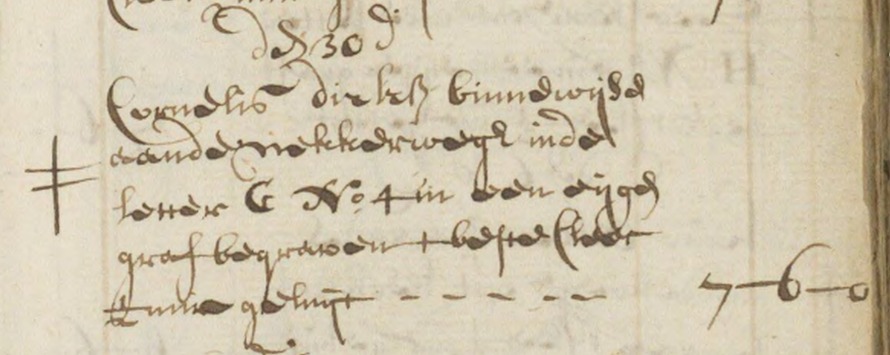 den 30 d
Cornelis Dirksz binnewijsen
aande nekkerwegh inde
letter C No. 4 in een eijgen
graf begraven t beste Cleet
2 uure geluijt - - - - - 7-6-0